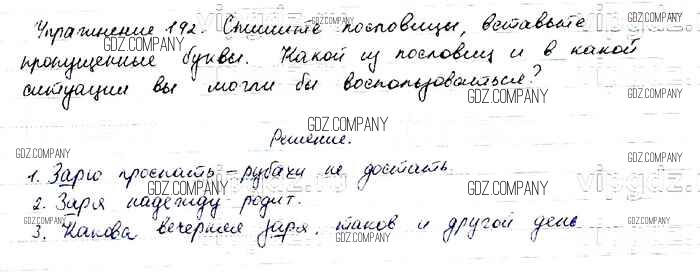 Упражнение 192. Спишите пословицы, вставьте
GDZ.COMPANY
пропущенные буквы. Какой из пословиц и в какой
ситуации вы могли бы воспользоваться?
GDZ.COMPANY
GDZ.COMPANY
GDZ.COMPANY
Решение.
GDZ.COMPANY
GDZ.COMPANY
1. Зарю проспать – рубахи не достать.
GDZ.COMPANY
GDZ.COMPANY
2. Заря надежду родит.
3. Какова вечерняя заря, таков и другой день
GDZ.COMPANY